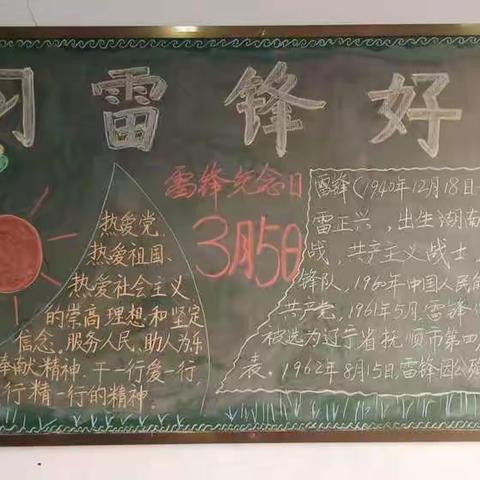 习雷锋好
热爱党、
热爱祖国、
热爱社会主义
的崇高理想和坚定
信念。服务人民、助人为乐
奉献精神。干一行爱一行、
行精一行的精神。
雷锋纪念日
3月5日
雷锋（1940年12月18日
雷正兴，出生湖南
战，共产主义战士，
锋队，1960年中国人民
共产党，1961年5月，雷锋
被选为辽宁省抚顺市第四
表。
1962年8月15日，雷锋因公殉